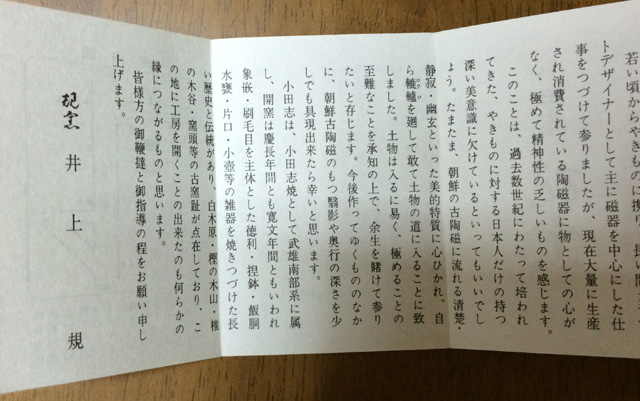 若い頃からやきものに携り、長い間
トデザイナーとして主に磁器を中心にした仕
事をつづけて参りましたが、現在大量に生産
され消費されている陶磁器に物としての心が
なく、極めて精神性の乏しいものを感じます。
このことは、過去数世紀にわたって培われ
てきた、やきものに対する日本人だけの持つ
深い美意識に欠けているといってもいいでし
ょう。たまたま、朝鮮の古陶磁に流れる清楚・
静寂・幽玄といった美的特質に心ひかれ、自
ら轆轤を廻して敢て土物の道に入ることに致
しました。土物は入るに易く、極めることの
至難なことを承知の上で、余生を賭けて参り
たいと存じます。今後作ってゆくもののなか
に、朝鮮古陶磁のもつ翳影や奥行の深さを少
しでも具現出来たら幸いと思います。
小田志は、小田志焼として武雄南部系に属
し、開窯は慶長年間とも寛文年間ともいわれ
象嵌・刷毛目を主体とした徳利・捏鉢・飯胴
水甕・片口・小壺等の雑器を焼きつづけた長
い歴史と伝統があり、白木原・樫の木山・椎
の木谷・窯頭等の古窯趾が点在しており、こ
の地に工房を開くことの出来たのも何らかの
縁につながるものと思います。
皆様方の御鞭撻と御指導の程をお願い申し
上げます。
規窯 井上 規